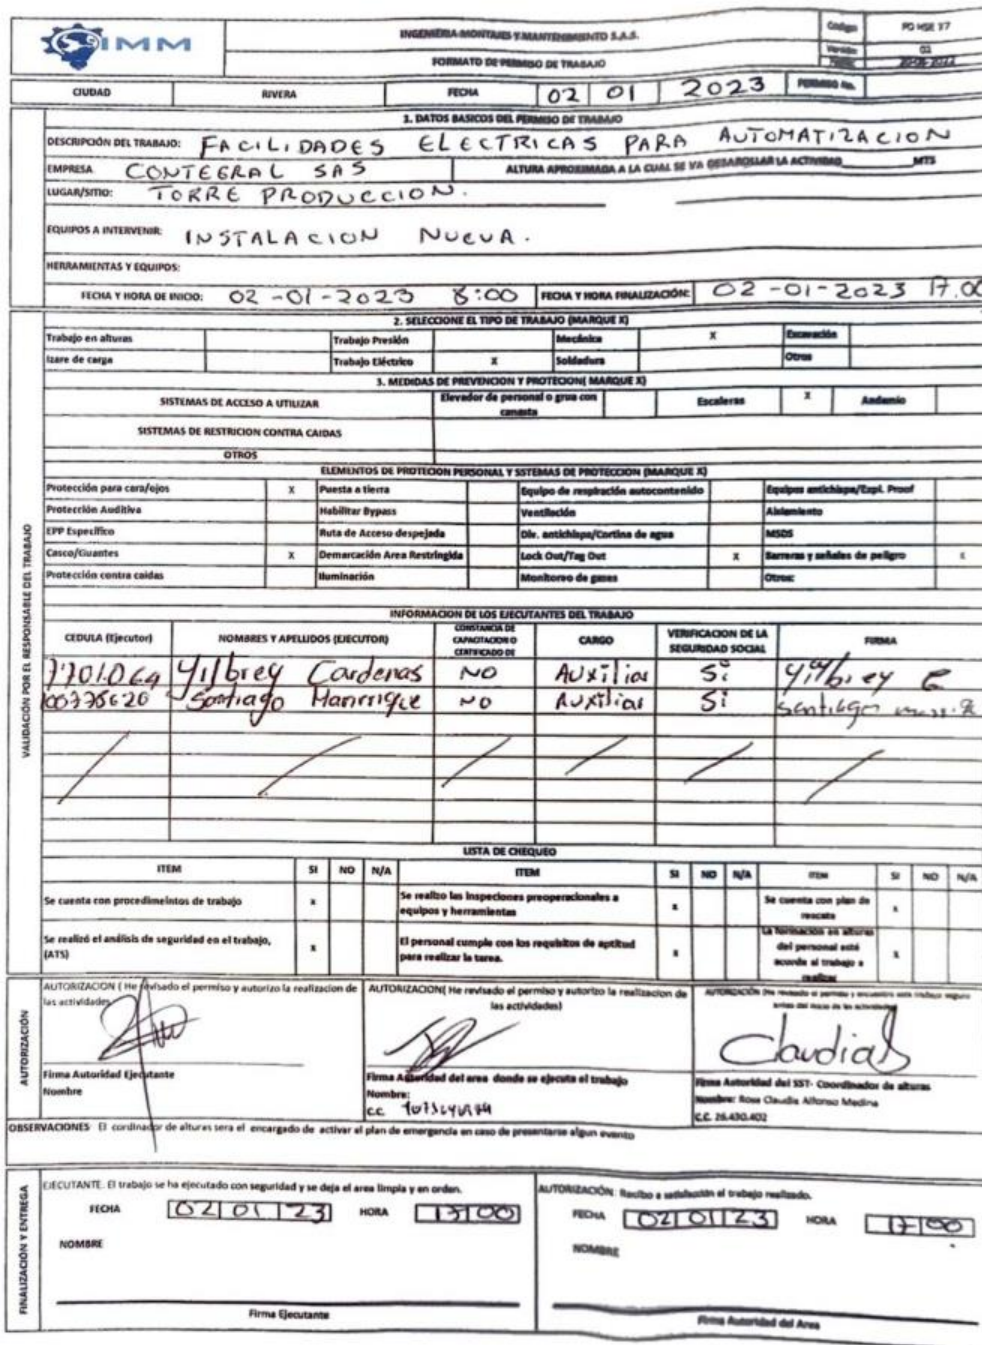 SIMM
INGENIERIA MONTAJES Y MANTENIMIENTO S.A.S.
FORMATO DE PERMISO DE TRABAJO
Código PO HSE 37
Versión 02
CIUDAD RIVERA FECHA 02 01 2023 PERMISO No.
1. DATOS BASICOS DEL PERMISO DE TRABAJO
DESCRIPCIÓN DEL TRABAJO: FACILIDADES ELECTRICAS PARA AUTOMATIZACION
EMPRESA CONTEGRAL SAS ALTURA APROXIMADA A LA CUAL SE VA DESAROLLAR LA ACTIVIDAD MTS
LUGAR/SITIO: TORRE PRODUCCION.
EQUIPOS A INTERVENIR: INSTALACION NUEVA.
HERRAMIENTAS Y EQUIPOS:
FECHA Y HORA DE INICIO: 02-01-2023 8:00 FECHA Y HORA FINALIZACIÓN: 02-01-2023 17.00
2. SELECCIONE EL TIPO DE TRABAJO (MARQUE X)
Trabajo en alturas Trabajo Presión Mecánica X Excavación
Izare de carga Trabajo Eléctrico X Soldadura Otros
3. MEDIDAS DE PREVENCION Y PROTECION( MARQUE X)
SISTEMAS DE ACCESO A UTILIZAR Elevador de personal o grua con canasta Escaleras X Andamio
SISTEMAS DE RESTRICION CONTRA CAIDAS
OTROS
ELEMENTOS DE PROTECION PERSONAL Y SSTEMAS DE PROTECCION (MARQUE X)
Protección para cara/ojos X Puesta a tierra Equipo de respiración autocontenido Equipos antichispa/Expl. Proof
Protección Auditiva Habilitar Bypass Ventilación Aislamiento
EPP Específico Ruta de Acceso despejada Div. antichispa/Cortina de agua MSDS
Casco/Guantes X Demarcación Area Restringida Lock Out/Tag Out X Barreras y señales de peligro X
Protección contra caidas Iluminación Monitoreo de gases Otros:
VALIDACIÓN POR EL RESPONSABLE DEL TRABAJO
INFORMACION DE LOS EJECUTANTES DEL TRABAJO
CEDULA (Ejecutor) NOMBRES Y APELLIDOS (EJECUTOR) CONSTANCIA DE CAPACITACION O CERTIFICADO DE CARGO VERIFICACION DE LA SEGURIDAD SOCIAL FIRMA
7701064 Yilbrey Cardenas NO Auxiliar Si Yilbrey C
Santiago Manrrique NO Auxiliar Si Santiago
LISTA DE CHEQUEO
ITEM SI NO N/A ITEM SI NO N/A ITEM SI NO N/A
Se cuenta con procedimeintos de trabajo x Se realizo las inspeciones preoperacionales a equipos y herramientas x Se cuenta con plan de rescate x
Se realizó el análisis de seguridad en el trabajo, (ATS) x El personal cumple con los requisitos de aptitud para realizar la tarea. x La formación en alturas del personal esté acorde al trabajo a realizar x
AUTORIZACIÓN
AUTORIZACION ( He revisado el permiso y autorizo la realizacion de las actividades
AUTORIZACION( He revisado el permiso y autorizo la realizacion de las actividades)
Claudia
Firma Autoridad Ejecutante
Nombre
Firma Autoridad del area donde se ejecuta el trabajo
Nombre:
C.C.
Firma Autoridad del SST- Coordinador de alturas
Nombre: Rosa Claudia Alfonso Medina
C.C. 26.430.402
OBSERVACIONES El cordinador de alturas sera el encargado de activar el plan de emergencia en caso de presentarse algun evento
FINALIZACIÓN Y ENTREGA
EJECUTANTE. El trabajo se ha ejecutado con seguridad y se deja el area limpia y en orden.
FECHA 02 01 23 HORA 17 00
NOMBRE
Firma Ejecutante
AUTORIZACIÓN: Recibo a satisfacción el trabajo realizado.
FECHA 02 01 23 HORA 17 00
NOMBRE
Firma Autoridad del Area